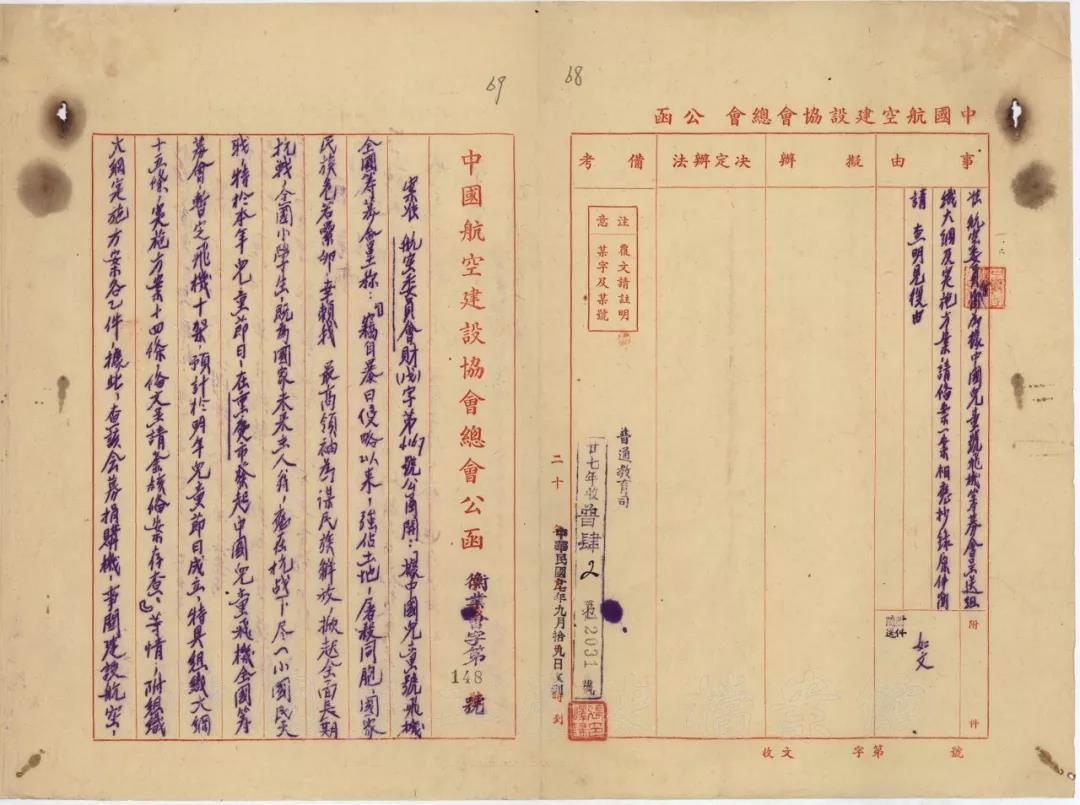 68
中國航空建設協會總會 公函
事由
擬辦
決定辦法
備考
准 航空委員會函為據中國兒童號飛機籌募會呈送組
織大綱及實施方案，請備案一案相應抄錄原件函
請 查明見復由
附件
附件隨送
如文
注意
覆文請註明
某字及某號
普通教育司
廿七年收普肆2 第2031號
中華民國廿七年九月拾九日收到
二十
時到
收文 字第 號
69
中國航空建設協會總會公函 衡業普字第148號
案准 航空委員會財(戊)字第4167號公函開：「據中國兒童號飛機
全國籌募會呈稱：『竊自暴日侵略以來，強佔土地，屠殺同胞，國家
民族危若纍卵，幸賴我 最高領袖為謀民族解放，掀起全面長期
抗戰，全國小學生，既為國家未來主人翁，應在抗战下尽一小國民天
職，特於本年兒童節日，在重慶市發起中國兒童飛機全國籌
募會，暫定飛機十架，預計於明年兒童節日成立，特具組織大綱
十五條，實施方案十四條，俻文呈請鉴核俻案存查』等情，附組織
大綱实施方案各乙件，據此，查該会募捐購機，事関建設航空，